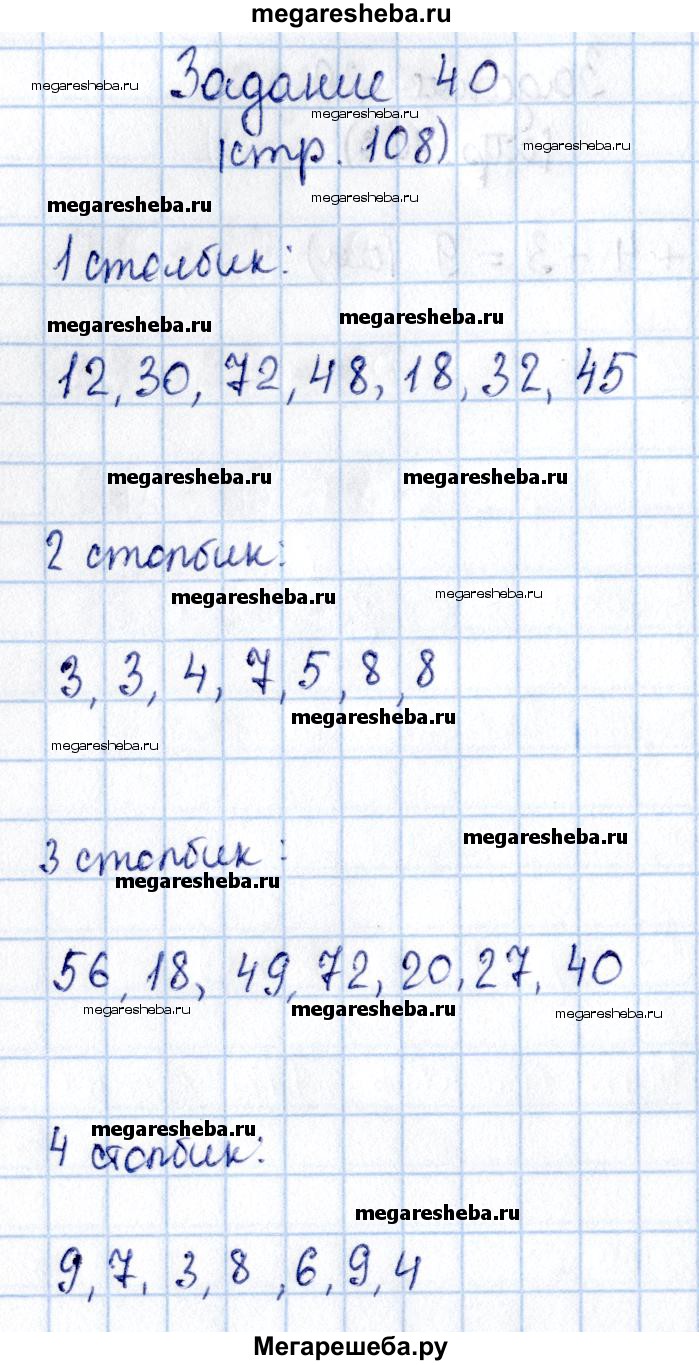 megaresheba.ru
Задание 40
megaresheba.ru
megaresheba.ru
(стр. 108)
megaresheba.ru
megaresheba.ru
megaresheba.ru
1 столбик:
megaresheba.ru
megaresheba.ru
12, 30, 72, 48, 18, 32, 45
megaresheba.ru
megaresheba.ru
2 столбик:
megaresheba.ru
megaresheba.ru
3, 3, 4, 7, 5, 8, 8
megaresheba.ru
megaresheba.ru
megaresheba.ru
3 столбик:
megaresheba.ru
56, 18, 49, 72, 20, 27, 40
megaresheba.ru
megaresheba.ru
megaresheba.ru
megaresheba.ru
4 столбик:
megaresheba.ru
9, 7, 3, 8, 6, 9, 4
Мегарешеба.ру